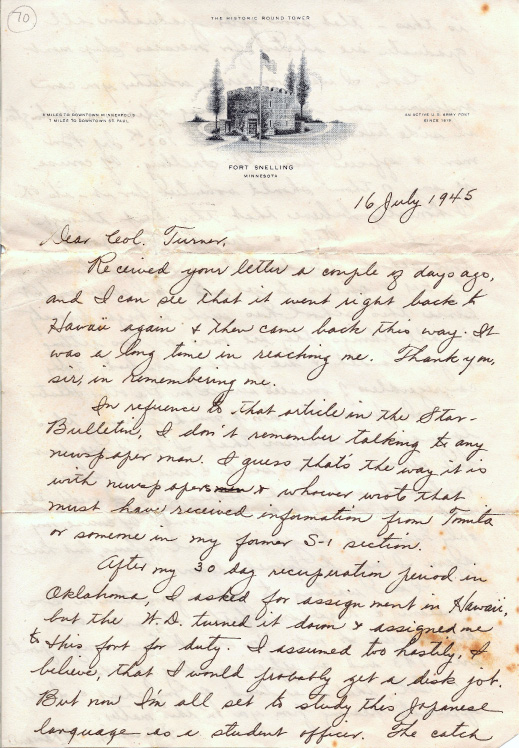 70
THE HISTORIC ROUND TOWER
6 MILES TO DOWNTOWN MINNEAPOLIS
7 MILES TO DOWNTOWN ST. PAUL
AN ACTIVE U.S. ARMY POST
SINCE 1819
FORT SNELLING
MINNESOTA
16 July 1945
Dear Col. Turner,
Received your letter a couple of days ago,
and I can see that it went right back to
Hawaii again & then came back this way. It
was a long time in reaching me. Thank you,
sir, in remembering me.
In refrence to that article in the Star-
Bulletin, I don't remember talking to any
newspaper man. I guess that's the way it is
with newspapers & whoever wrote that
must have received information from Tomita
or someone in my former S-1 section.
After my 30 day recuperation period in
Oklahoma, I asked for assignment in Hawaii,
but the W.D. turned it down & assigned me
to this fort for duty. I assumed too hastily, I
believe, that I would probably get a disk job.
But now I'm all set to study this Japanese
language as a student officer. The catch